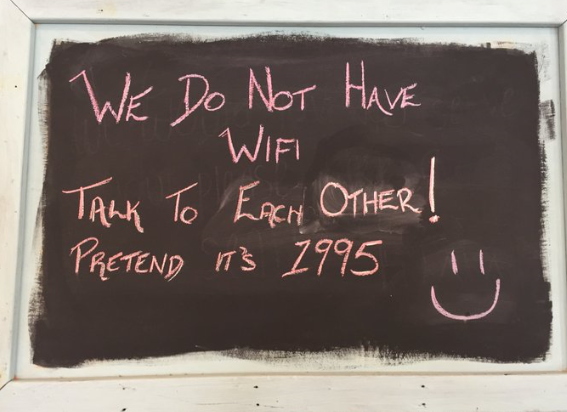 We Do Not Have
Wifi
Talk To Each Other!
Pretend it's 1995